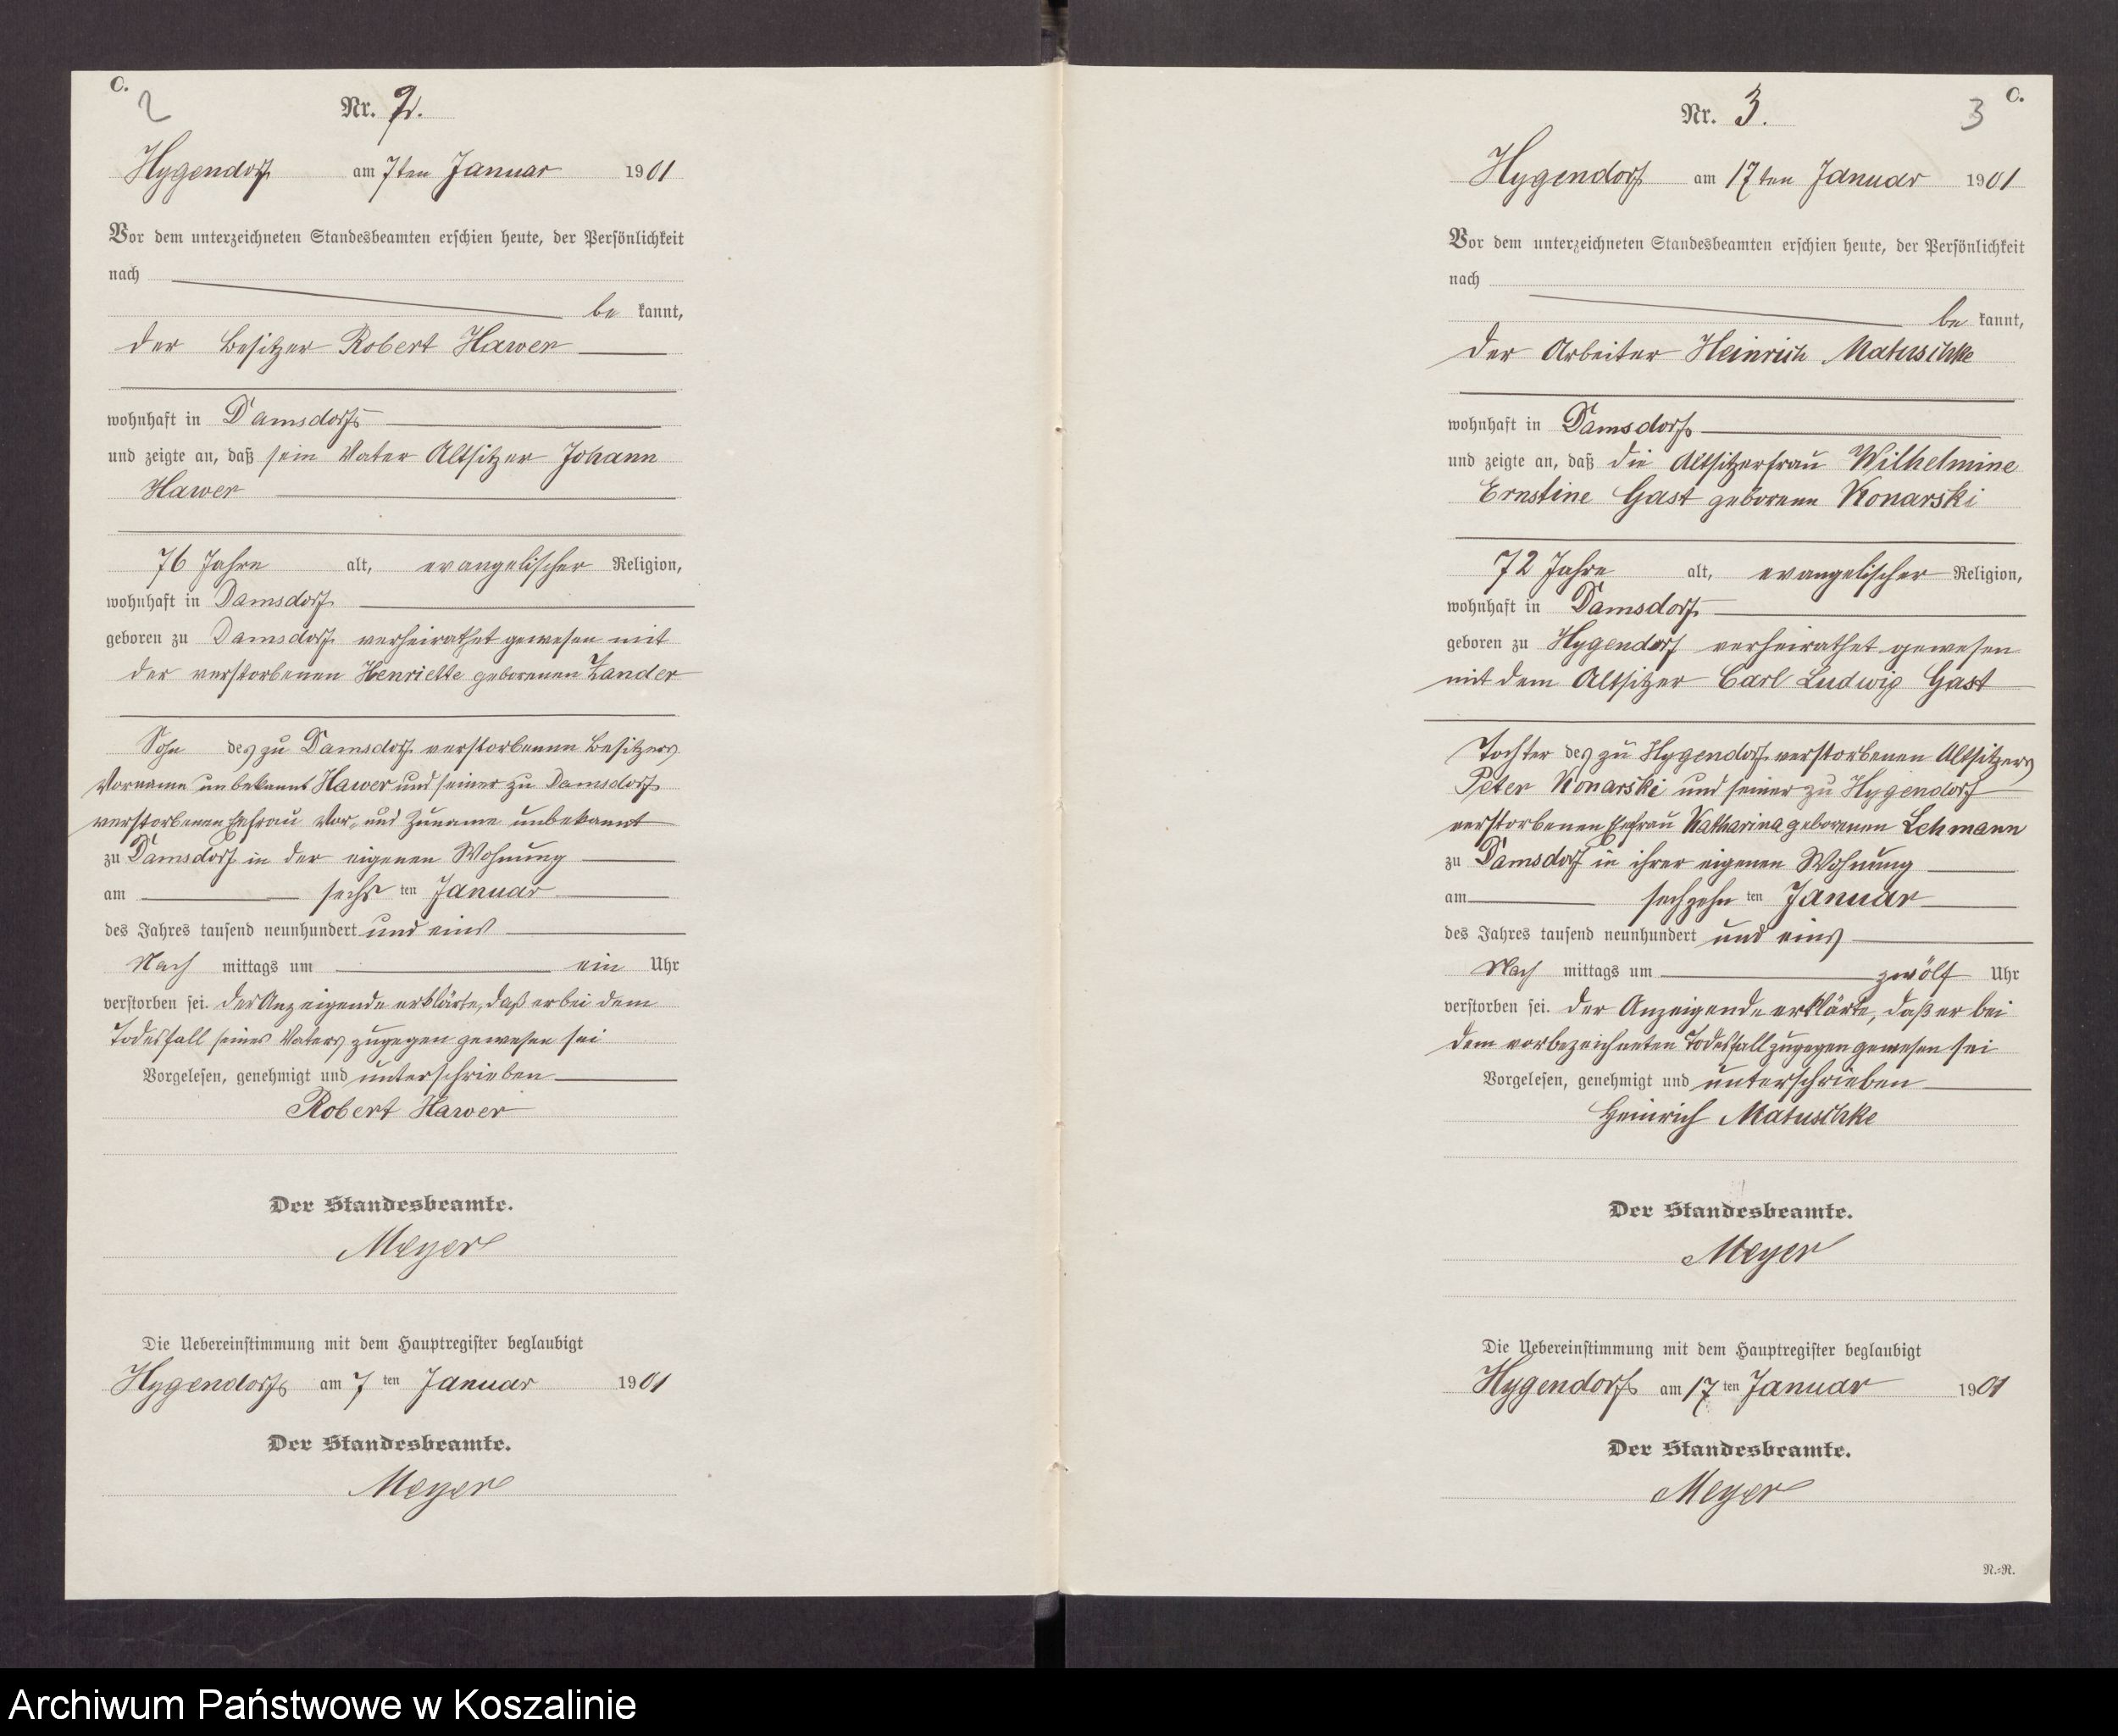 C.
2
Nr. 2.
Hygendorf am 7ten Januar 1901
Vor dem unterzeichneten Standesbeamten erschien heute, der Persönlichkeit
nach
be kannt,
der Besitzer Robert Hawer
wohnhaft in Damsdorf
und zeigte an, daß sein Vater Altsitzer Johann
Hawer
76 Jahre alt, evangelischer Religion,
wohnhaft in Damsdorf
geboren zu Damsdorf verheirathet gewesen mit
der verstorbenen Henriette geborenen Zander
Sohn des zu Damsdorf verstorbenen Besitzers
Vorname unbekannt Hawer und seiner zu Damsdorf
verstorbenen Ehefrau Vor- und Zuname unbekannt
zu Damsdorf in der eigenen Wohnung
am sechs ten Januar
des Jahres tausend neunhundert und eins
Nach mittags um ein Uhr
verstorben sei. Der Anzeigende erklärte, daß er bei dem
Todesfall seines Vaters zugegen gewesen sei
Vorgelesen, genehmigt und unterschrieben
Robert Hawer
Der Standesbeamte.
Meyer
Die Uebereinstimmung mit dem Hauptregister beglaubigt
Hygendorf am 7 ten Januar 1901
Der Standesbeamte.
Meyer
C.
3
Nr. 3.
Hygendorf am 17ten Januar 1901
Vor dem unterzeichneten Standesbeamten erschien heute, der Persönlichkeit
nach
be kannt,
der Arbeiter Heinrich Matuschke
wohnhaft in Damsdorf
und zeigte an, daß die Altsitzerfrau Wilhelmine
Ernstine Gast geborene Konarski
72 Jahre alt, evangelischer Religion,
wohnhaft in Damsdorf
geboren zu Hygendorf verheirathet gewesen
mit dem Altsitzer Carl Ludwig Gast
Tochter des zu Hygendorf verstorbenen Altsitzers
Peter Konarski und seiner zu Hygendorf
verstorbenen Ehefrau Katharina geborenen Lehmann
zu Damsdorf in ihrer eigenen Wohnung
am sechzehn ten Januar
des Jahres tausend neunhundert und eins
Nach mittags um zwölf Uhr
verstorben sei. Der Anzeigende erklärte, daß er bei
dem vorbezeichneten Todesfall zugegen gewesen sei
Vorgelesen, genehmigt und unterschrieben
Heinrich Matuschke
Der Standesbeamte.
Meyer
Die Uebereinstimmung mit dem Hauptregister beglaubigt
Hygendorf am 17 ten Januar 1901
Der Standesbeamte.
Meyer
N.=N.
Archiwum Państwowe w Koszalinie